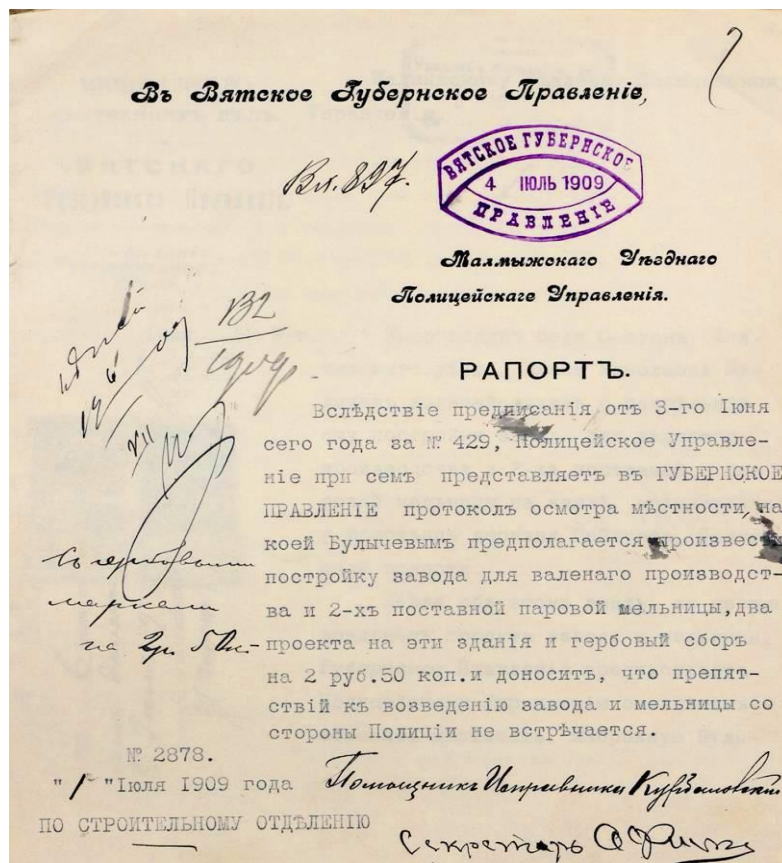 Въ Вятское Губернское Правленіе,
Вх. 897.
ВЯТСКОЕ ГУБЕРНСКОЕ
4 ІЮЛЬ 1909
ПРАВЛЕНІЕ
Малмыжскаго Уѣзднаго
Полицейскаге Управленія.
132
РАПОРТЪ.
Вслѣдствіе предписанія отъ 3-го Іюня
сего года за № 429, Полицейское Управле-
ніе при семъ представляетъ въ ГУБЕРНСКОЕ
ПРАВЛЕНІЕ протоколъ осмотра мѣстности, на
коей Булычевымъ предполагается произвести
постройку завода для валенаго производст-
ва и 2-хъ поставной паровой мельницы, два
проекта на эти зданія и гербовый сборъ
на 2 руб.50 коп.и доноситъ, что препят-
ствій къ возведенію завода и мельницы со
стороны Полиціи не встрѣчается.
Съ гербовыми
марками
на 2р 50к
№ 2878.
"1" Іюля 1909 года
ПО СТРОИТЕЛЬНОМУ ОТДѢЛЕНІЮ
Помощникъ Исправника
Секретарь